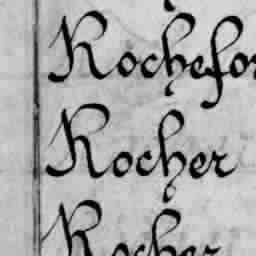 Rochefor
Rocher
Rocher